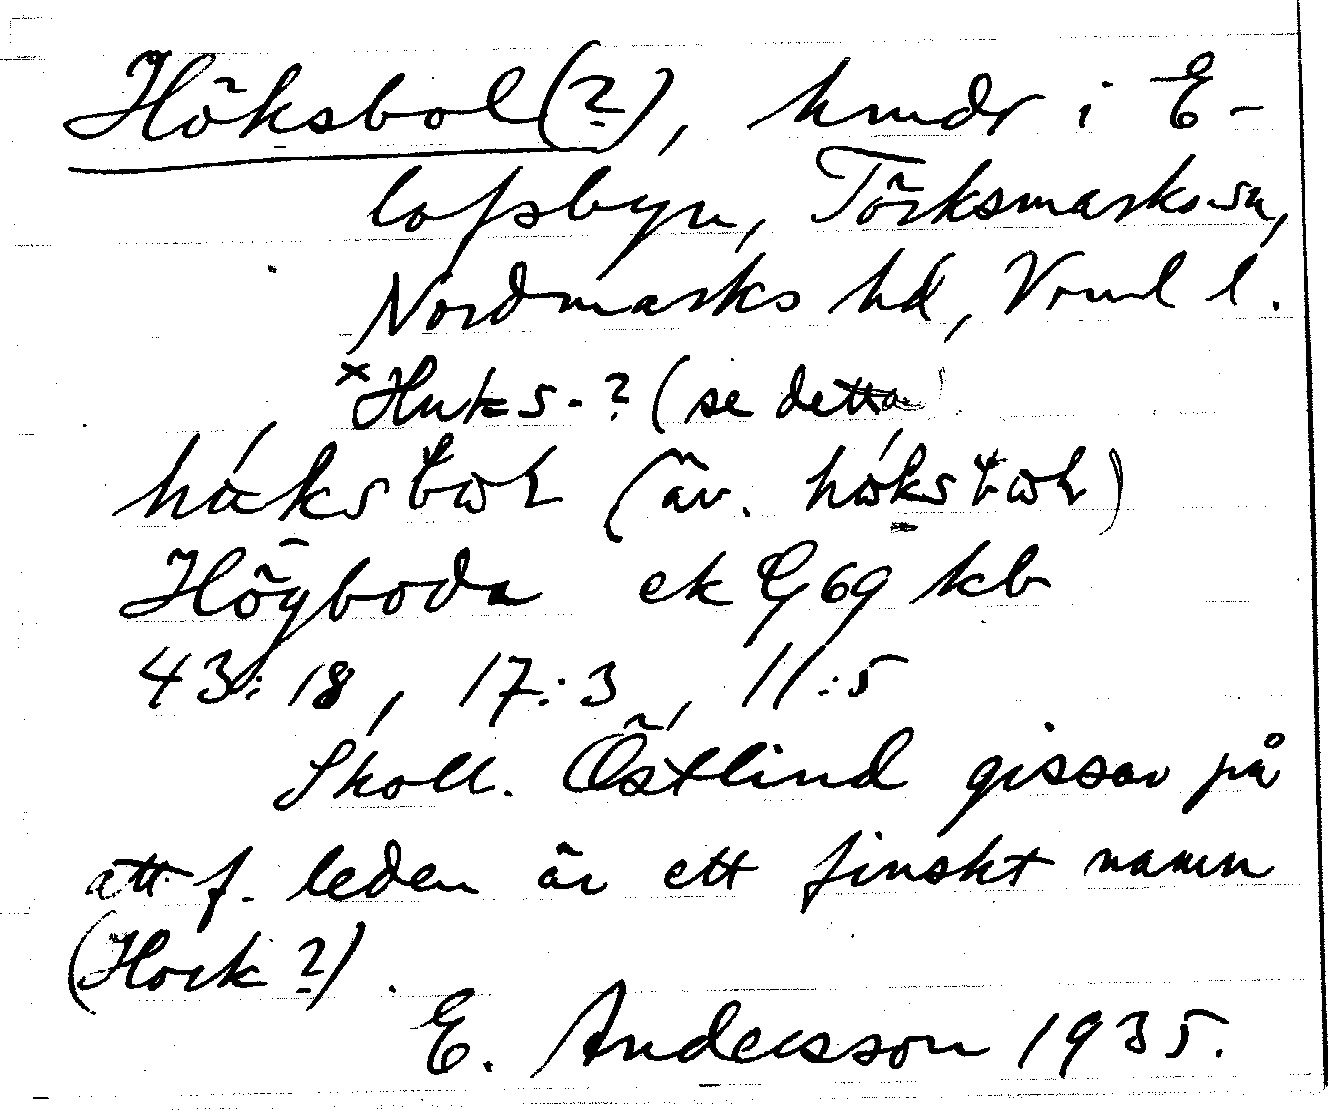 Höksbol(?), hmdr i E-
lofsbyn, Törksmarks sn,
Nordmarks hd, Vrml l.
×Huks-? (se detta)
håks (äv. höks)
Högboda ek G69 kb
43:18, 17:3, 11:5
Skoll. Östlind gissar på
att f. leden är ett finskt namn
(Hock?).
E. Andersson 1935.